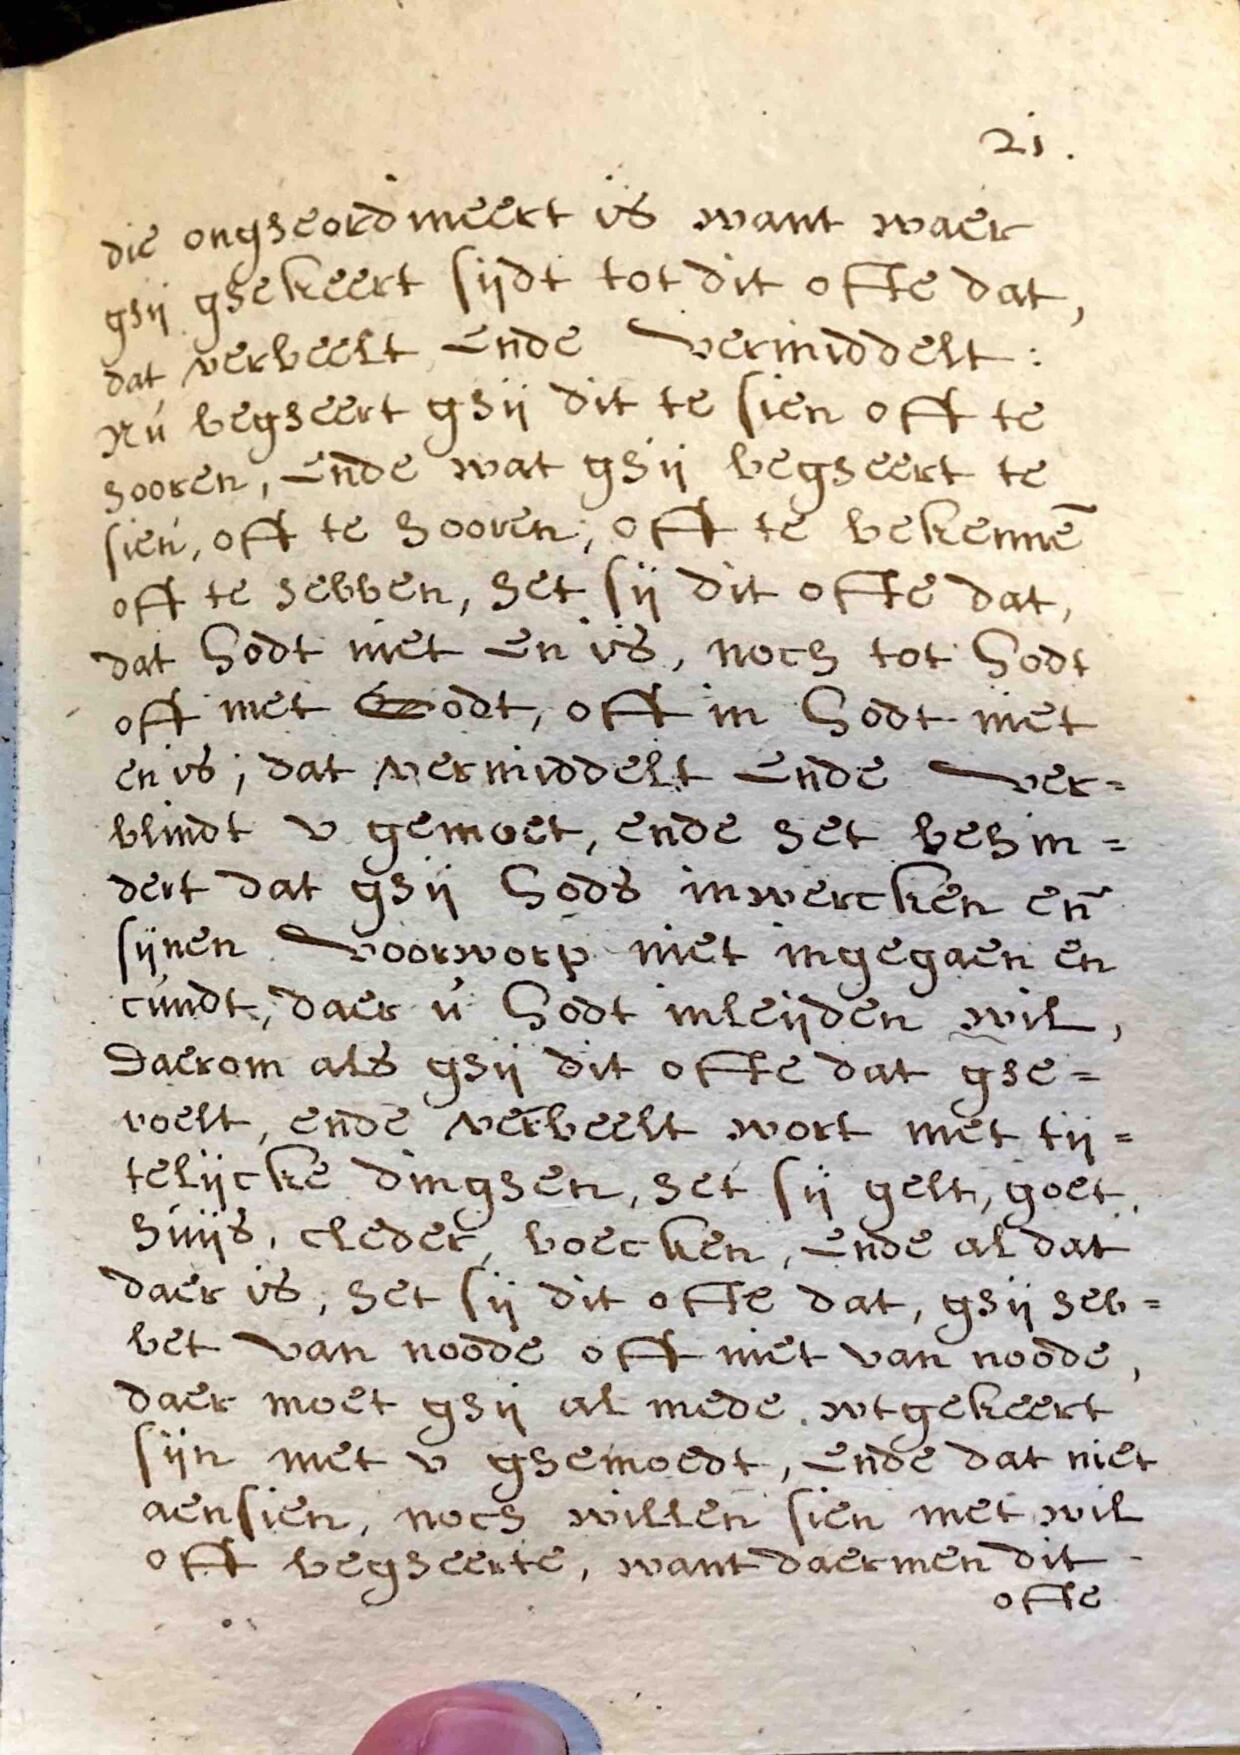 21.
die ongheordineert is want waer
ghij ghekeert sijdt tot dit ofte dat,
dat verbeelt ende vermiddelt:
Nú begheert ghij dit te sien oft te
hooren, ende wat ghij begheert te
sien, oft te hooren, oft te bekennē
oft te hebben, het sij dit ofte dat,
dat Godt niet en is, noch tot Godt
oft met Godt, oft in Godt niet
en is; dat vermiddelt ende ver=
blindt v gemoet, ende het behin=
dert dat ghij Gods inwercken eñ
sijnen voorworp niet ingegaen en
cúndt, daer ú Godt inleijden wil,
Daerom als ghij dit ofte dat ghe=
voelt, ende verbeelt wort met tij=
telijcke dinghen, het sij gelt, goet,
húijs, cleder, boecken, ende al dat
daer is, het sij dit ofte dat, ghij heb=
bet van noode oft niet van noode,
daer moet ghij al mede wtgekeert
sijn met v ghemoedt, ende dat niet
aensien, noch willen sien met wil
oft begheerte, want daermen dit
ofte